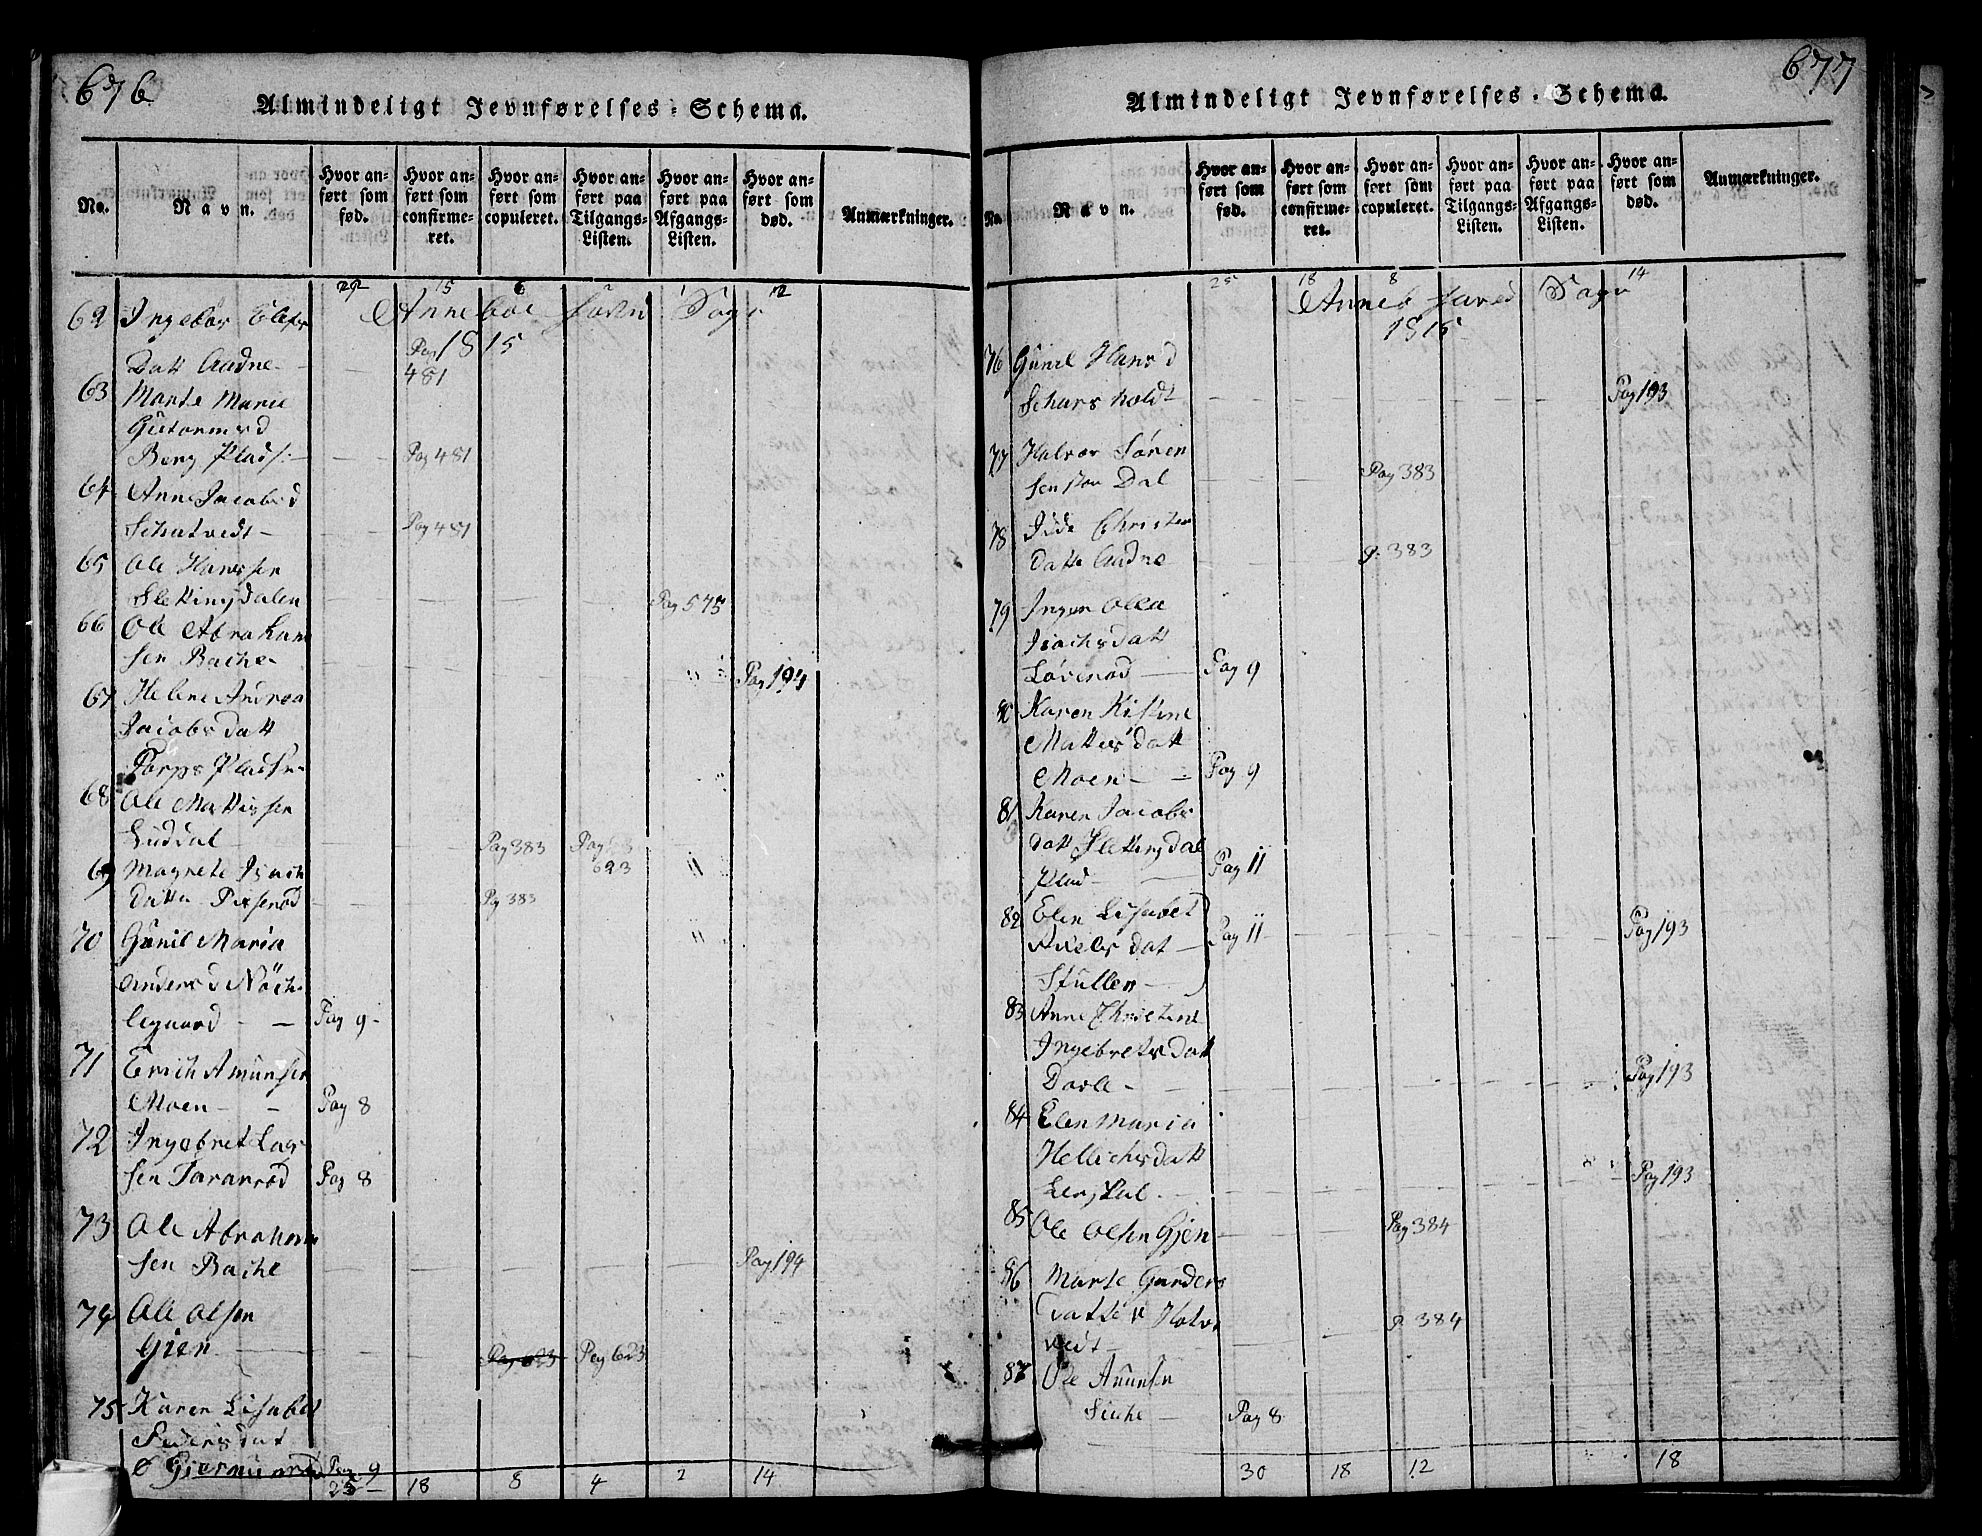 676
Almindeligt Jevnførelses-Schema.
No.
Navn.
Hvor anført som fød.
Hvor anført som confirmeret.
Hvor anført som copuleret.
Hvor anført paa Tilgangs-Listen.
Hvor anført paa Afgangs-Listen.
Hvor anført som død.
Anmærkninger.
15 6 1 12
Anneboe Sogn
1815
62 Ingebor
Datt Aadne - Pag 481
63 Marte Marie
Gutormsd
Berg Plads - Pag 481
64 Anne Jacobsd
Schutvedt - Pag 481
65 Ole Hanssen
Slettingdalen Pag 575
66 Ole Abraham
sen Bache - Pag 194
67 Helene Andrea
Jacobs datt
Torps Pladsen
68 Ole Mattissen
Luddal Pag 383 Pag 623
69 Magrete Isach
Datter Pag 383
70 Gunil Maria
Anders d Nøch
legaard - - Pag 9 -
71 Erich Amunsen
Moen - - Pag 8
72 Ingebret Lar
sen Taranrød Pag 8
73 Ole Abraham
sen Bache Pag 194
74 Ole Olsen
Gien Pag 623 Pag 623
75 Karen Lisabet
Pedersdat
Pag 9
25 - 18 8 4 2 14
677
Almindeligt Jevnførelses-Schema.
No.
Navn.
Hvor anført som fød.
Hvor anført som confirmeret.
Hvor anført som copuleret.
Hvor anført paa Tilgangs-Listen.
Hvor anført paa Afgangs-Listen.
Hvor anført som død.
Anmærkninger.
25 18 8 14
Anneb Sogn
1815
76 Gunil Hansd
Schursholdt Pag 193
77 Halvor Søren
sen Dal Pag 383
78 Christen
Datte Aadne P. 383
79 Ingen Olea
Isachsdatt
Løvenød Pag 9
80 Karen Kistine
Mattisdatt
Moen - - Pag 9
81 Karen Jacobs
datt Slettingdal
Plad - Pag 11
82 Elen Lisabet
Axelsdat - Pag 11 Pag 193
Stullen -
83 Anne Christine
Ingebretsdat
Dable - Pag 193
84 Elen Maria
Hellichsdatt
Pag 193
85 Ole Olsen Gjen - Pag 384
86 Marte Gunders
datter Holt
vedt P. 384
87 Ole Amunsen
Siiche - Pag 8
30 18 12 18